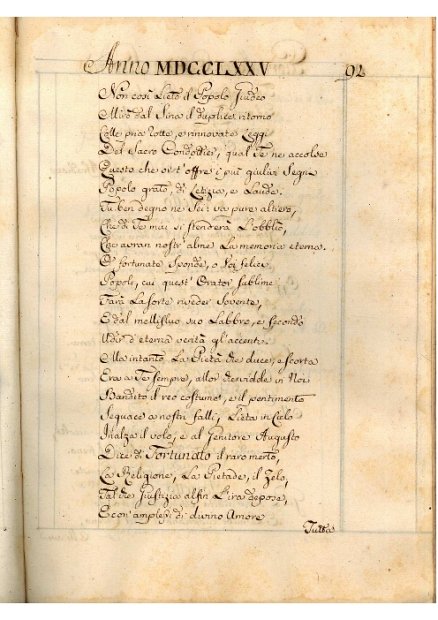 Anno MDCCLXXV 92
Non così Lieto il Popolo Judeo
Mirò dal Sina il duplice ritorno
Colle pria rotte, e rinnovate Leggi
Del Sacro Condottier, qual Te ne accolse
Questo che or t'offre i più giulivi Segni
Popolo grato, di Letizia, e Laude.
Tu ben degno ne Sei: va pure altiero,
Che di Te mai si stenderà L'obblio,
Che avran nostr'alme La memoria eterna.
O fortunate Sponde, o Voi felici
Popoli, cui quest'Orator sublime
Farà La sorte riveder sovente,
E dal mellifluo suo Labbro, e secondo
Udir d'eterna verità gl'accenti.
Ma intanto La Pietà che duce, e scorta
Era a Te sempre, allor che vidde in Noi
Bandito il reo costume, e il pentimento
Seguace a nostri falli, Lieta in Cielo
Inalza il volo, e al Genitore Augusto
Dice di Fortunato il raro merto,
La Religione, La Pietade, il Zelo,
Tal che Giustizia alfin L'ira depose,
E con amplessi di divino Amore
Tutta